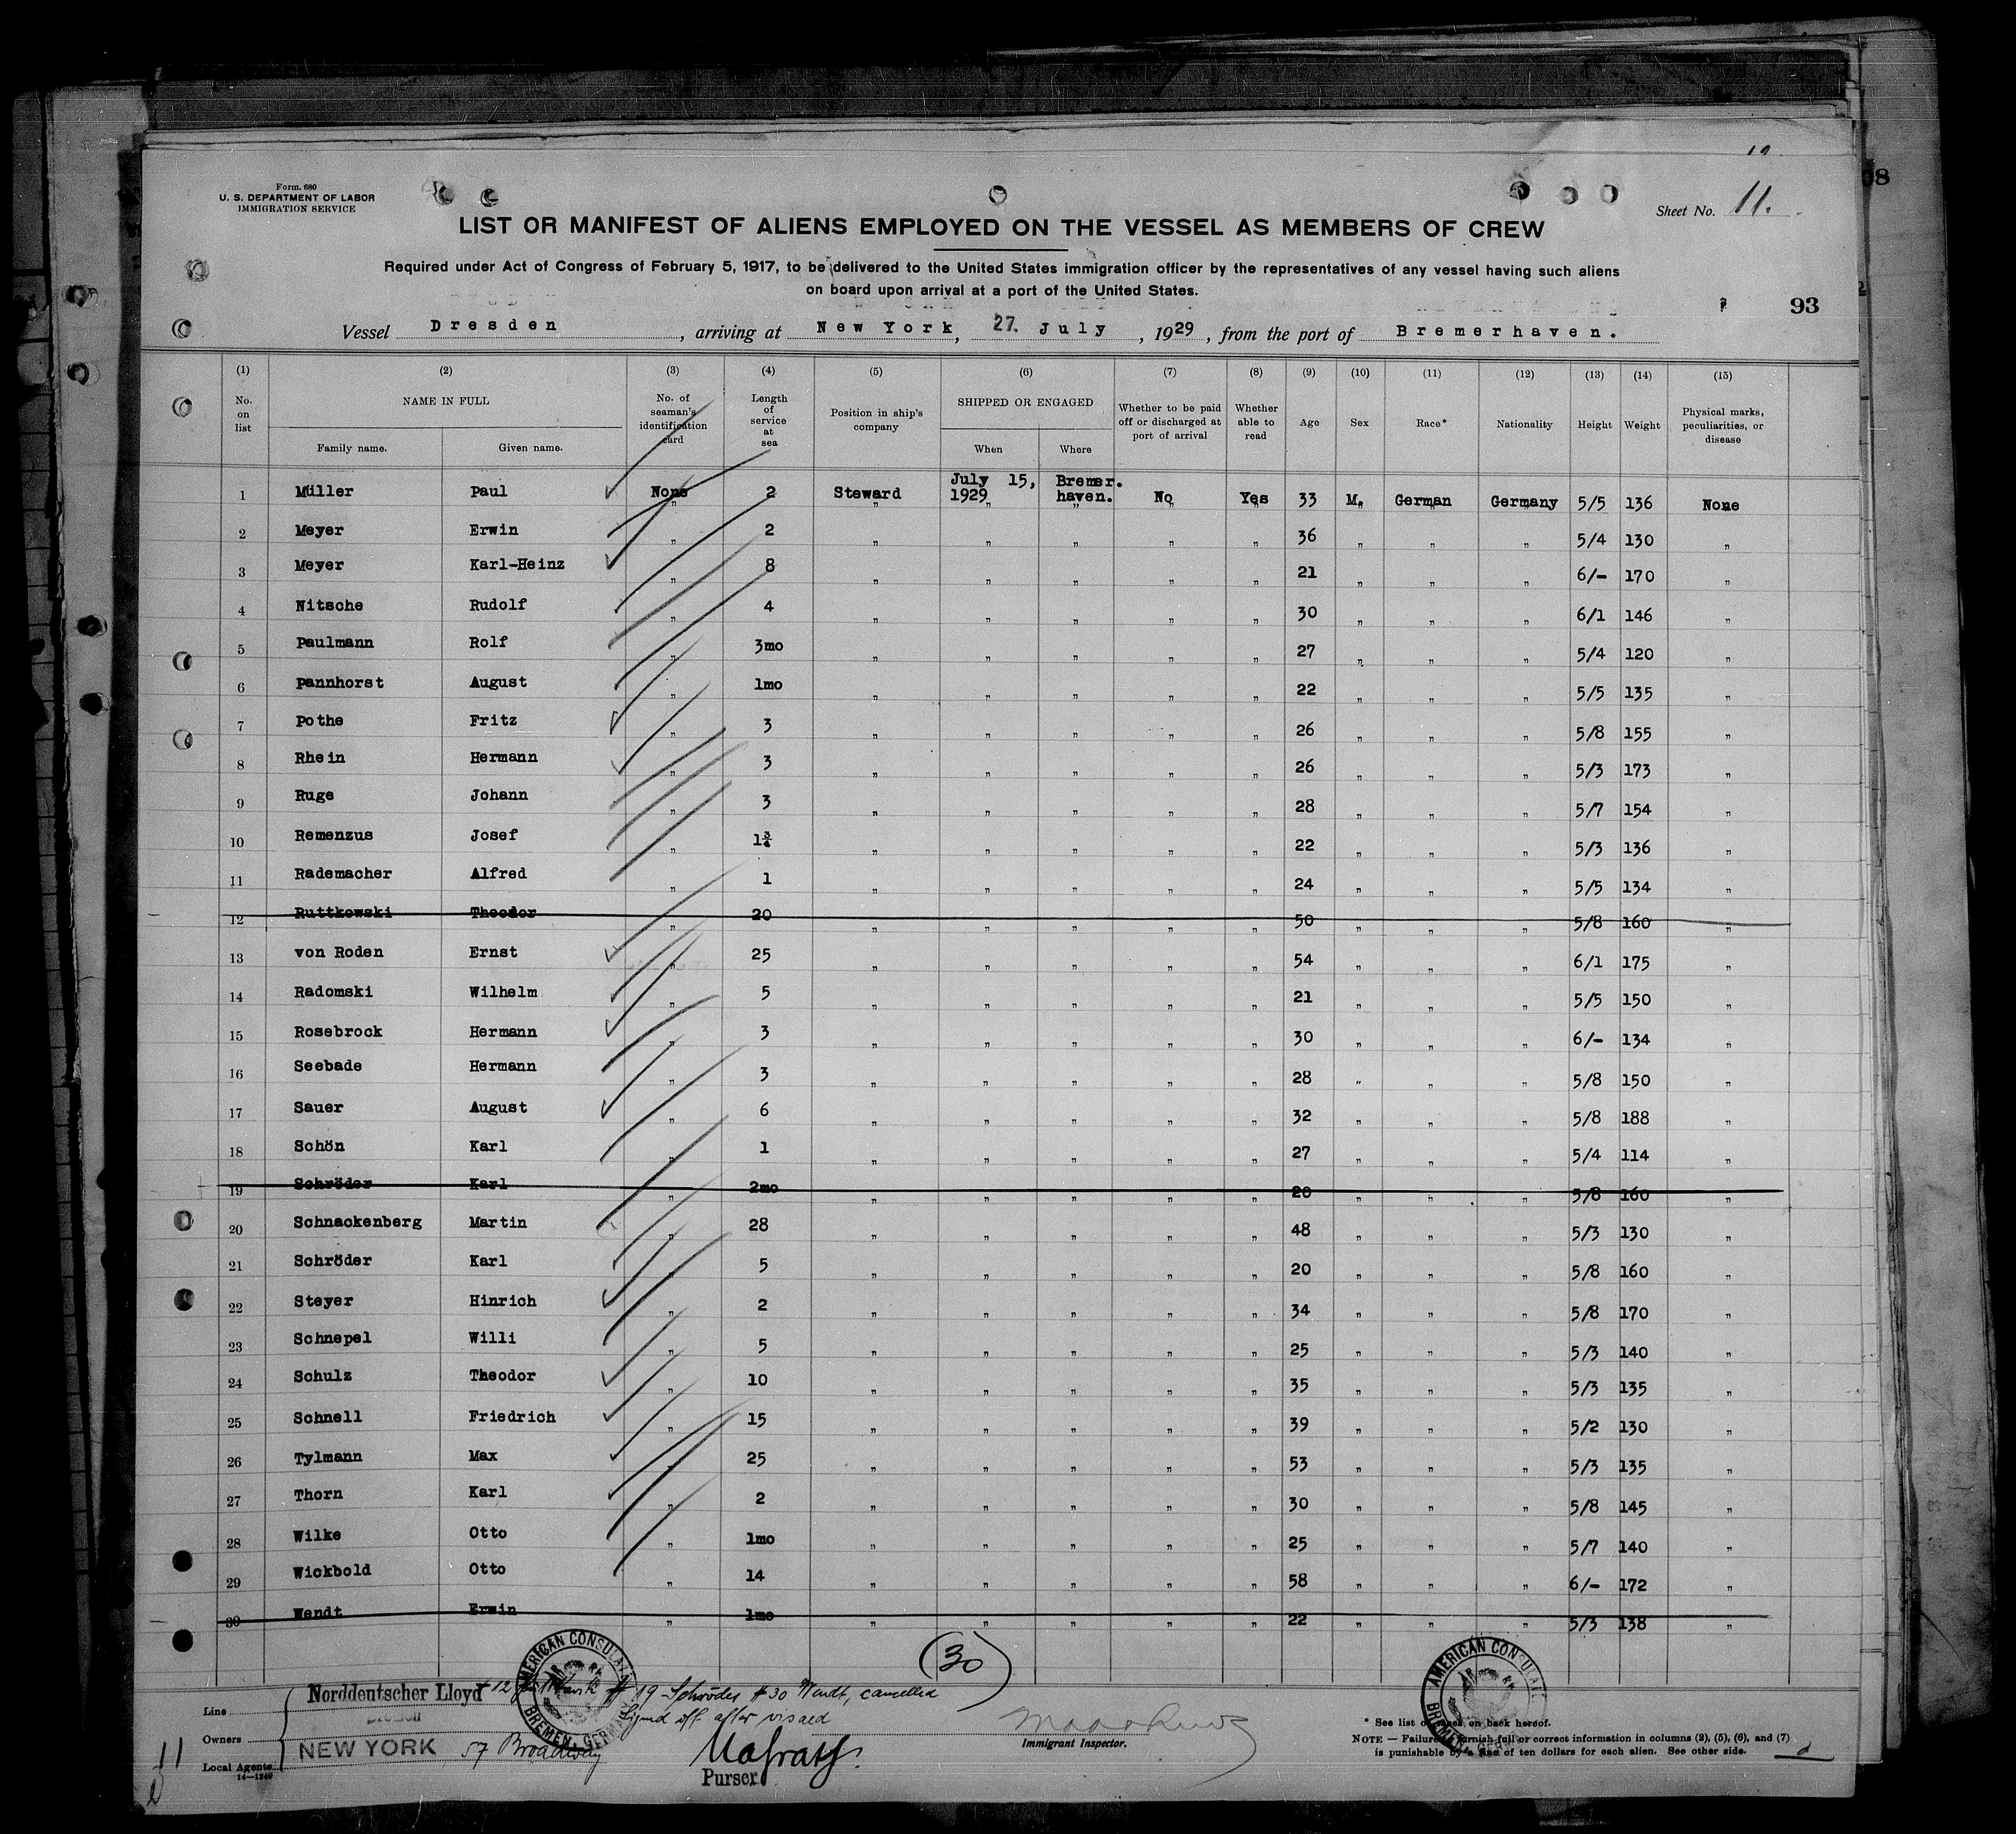 Form. 680
U. S. DEPARTMENT OF LABOR
IMMIGRATION SERVICE
Sheet No. 11.
LIST OR MANIFEST OF ALIENS EMPLOYED ON THE VESSEL AS MEMBERS OF CREW
Required under Act of Congress of February 5, 1917, to be delivered to the United States immigration officer by the representatives of any vessel having such aliens
on board upon arrival at a port of the United States.
93
Vessel Dresden, arriving at New York, 27. July, 1929, from the port of Bremerhaven.
(1) (2) (3) (4) (5) (6) (7) (8) (9) (10) (11) (12) (13) (14) (15)
No. on list NAME IN FULL Family name. Given name. No. of seaman's identification card Length of service at sea Position in ship's company SHIPPED OR ENGAGED When Where Whether to be paid off or discharged at port of arrival Whether able to read Age Sex Race* Nationality Height Weight Physical marks, peculiarities, or disease
1 Müller Paul None 2 Steward July 15, 1929 Bremer. haven. No Yes 33 M. German Germany 5/5 136 None
2 Meyer Erwin " 2 " " " " " 36 " " " 5/4 130 "
3 Meyer Karl-Heinz " 8 " " " " " 21 " " " 6/- 170 "
4 Nitsche Rudolf " 4 " " " " " 30 " " " 6/1 146 "
5 Paulmann Rolf " 3mo " " " " " 27 " " " 5/4 120 "
6 Pannhorst August " 1mo " " " " " 22 " " " 5/5 135 "
7 Pothe Fritz " 3 " " " " " 26 " " " 5/8 155 "
8 Rhein Hermann " 3 " " " " " 26 " " " 5/3 173 "
9 Ruge Johann " 3 " " " " " 28 " " " 5/7 154 "
10 Remenzus Josef " 1¾ " " " " " 22 " " " 5/3 136 "
11 Rademacher Alfred " 1 " " " " " 24 " " " 5/5 134 "
12 Ruttkowski Theodor " 20 " " " " " 50 " " " 5/8 160 "
13 von Roden Ernst " 25 " " " " " 54 " " " 6/1 175 "
14 Radomski Wilhelm " 5 " " " " " 21 " " " 5/5 150 "
15 Rosebrock Hermann " 3 " " " " " 30 " " " 6/- 134 "
16 Seebade Hermann " 3 " " " " " 28 " " " 5/8 150 "
17 Sauer August " 6 " " " " " 32 " " " 5/8 188 "
18 Schön Karl " 1 " " " " " 27 " " " 5/4 114 "
19 Schröder Karl " 2mo " " " " " 20 " " " 5/8 160 "
20 Schnackenberg Martin " 28 " " " " " 48 " " " 5/3 130 "
21 Schröder Karl " 5 " " " " " 20 " " " 5/8 160 "
22 Steyer Hinrich " 2 " " " " " 34 " " " 5/8 170 "
23 Schnepel Willi " 5 " " " " " 25 " " " 5/3 140 "
24 Schulz Theodor " 10 " " " " " 35 " " " 5/3 135 "
25 Schnell Friedrich " 15 " " " " " 39 " " " 5/2 130 "
26 Tylmann Max " 25 " " " " " 53 " " " 5/3 135 "
27 Thorn Karl " 2 " " " " " 30 " " " 5/8 145 "
28 Wilke Otto " 1mo " " " " " 25 " " " 5/7 140 "
29 Wickbold Otto " 14 " " " " " 58 " " " 6/- 172 "
30 Wendt Erwin " 1mo " " " " " 22 " " " 5/3 138 "
(30)
AMERICAN CONSULATE BREMEN, GERMANY
AMERICAN CONSULATE BREMEN, GERMANY
Line Norddeutscher Lloyd #12 #19 Schröder #30 Wendt, cancelled
signed off after visaed
Owners
NEW YORK 57 Broadway
Local Agents
14—1240
Purser
Immigrant Inspector.
* See list of races on back hereof.
NOTE — Failure to furnish full or correct information in columns (2), (5), (6), and (7)
is punishable by a fine of ten dollars for each alien. See other side.
11